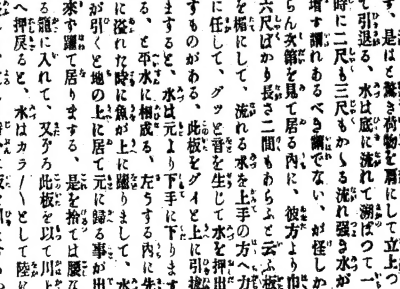 す、是はと驚き荷物を肩にして立上つ
て引退る、水は底に流れて溯ばつて一
時に二尺も三尺もかゝる流れ强き水が
増す謂れあるべき謂でない、が怪しか
らん次第を見て居る內に、彼方より巾
六尺ばかり長さ二間もあらふと云ふ板
を楯にして、流れる水を上手の方へ力
に任して、グッと音を生じて水を押出
すものがある、此板をダイと上に引揚
ますると、水は元より下手に下ります
る、と平水に相成る、左うする內に先
に溢れた時に魚が上に躍りまして、水
が引くと地の上に居て元に歸る事が出
來ず躍て居りまする、是を捨ては腰な
る籠に入れて、又候此板を以て川上
へ押戻ると、水はカラ〳〵として陸に